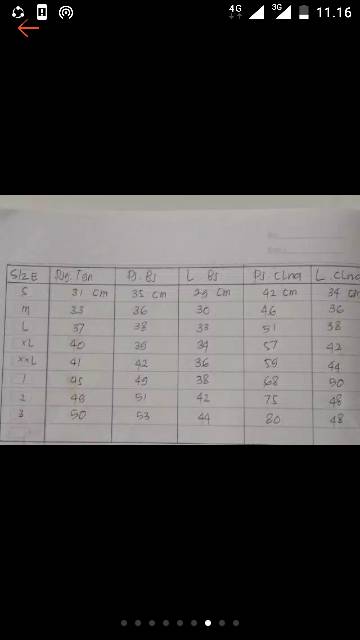 4G 3G 11.16
SIZE L. Bs L. Clna
S 31 cm 35 cm cm 42 cm 34 cm
M 33 36 30 46 36
L 37 38 33 51 38
XL 40 39 34 57 42
XXL 41 42 36 59 44
1 45 49 38 68 50
2 48 51 42 75 48
3 50 53 44 80 48